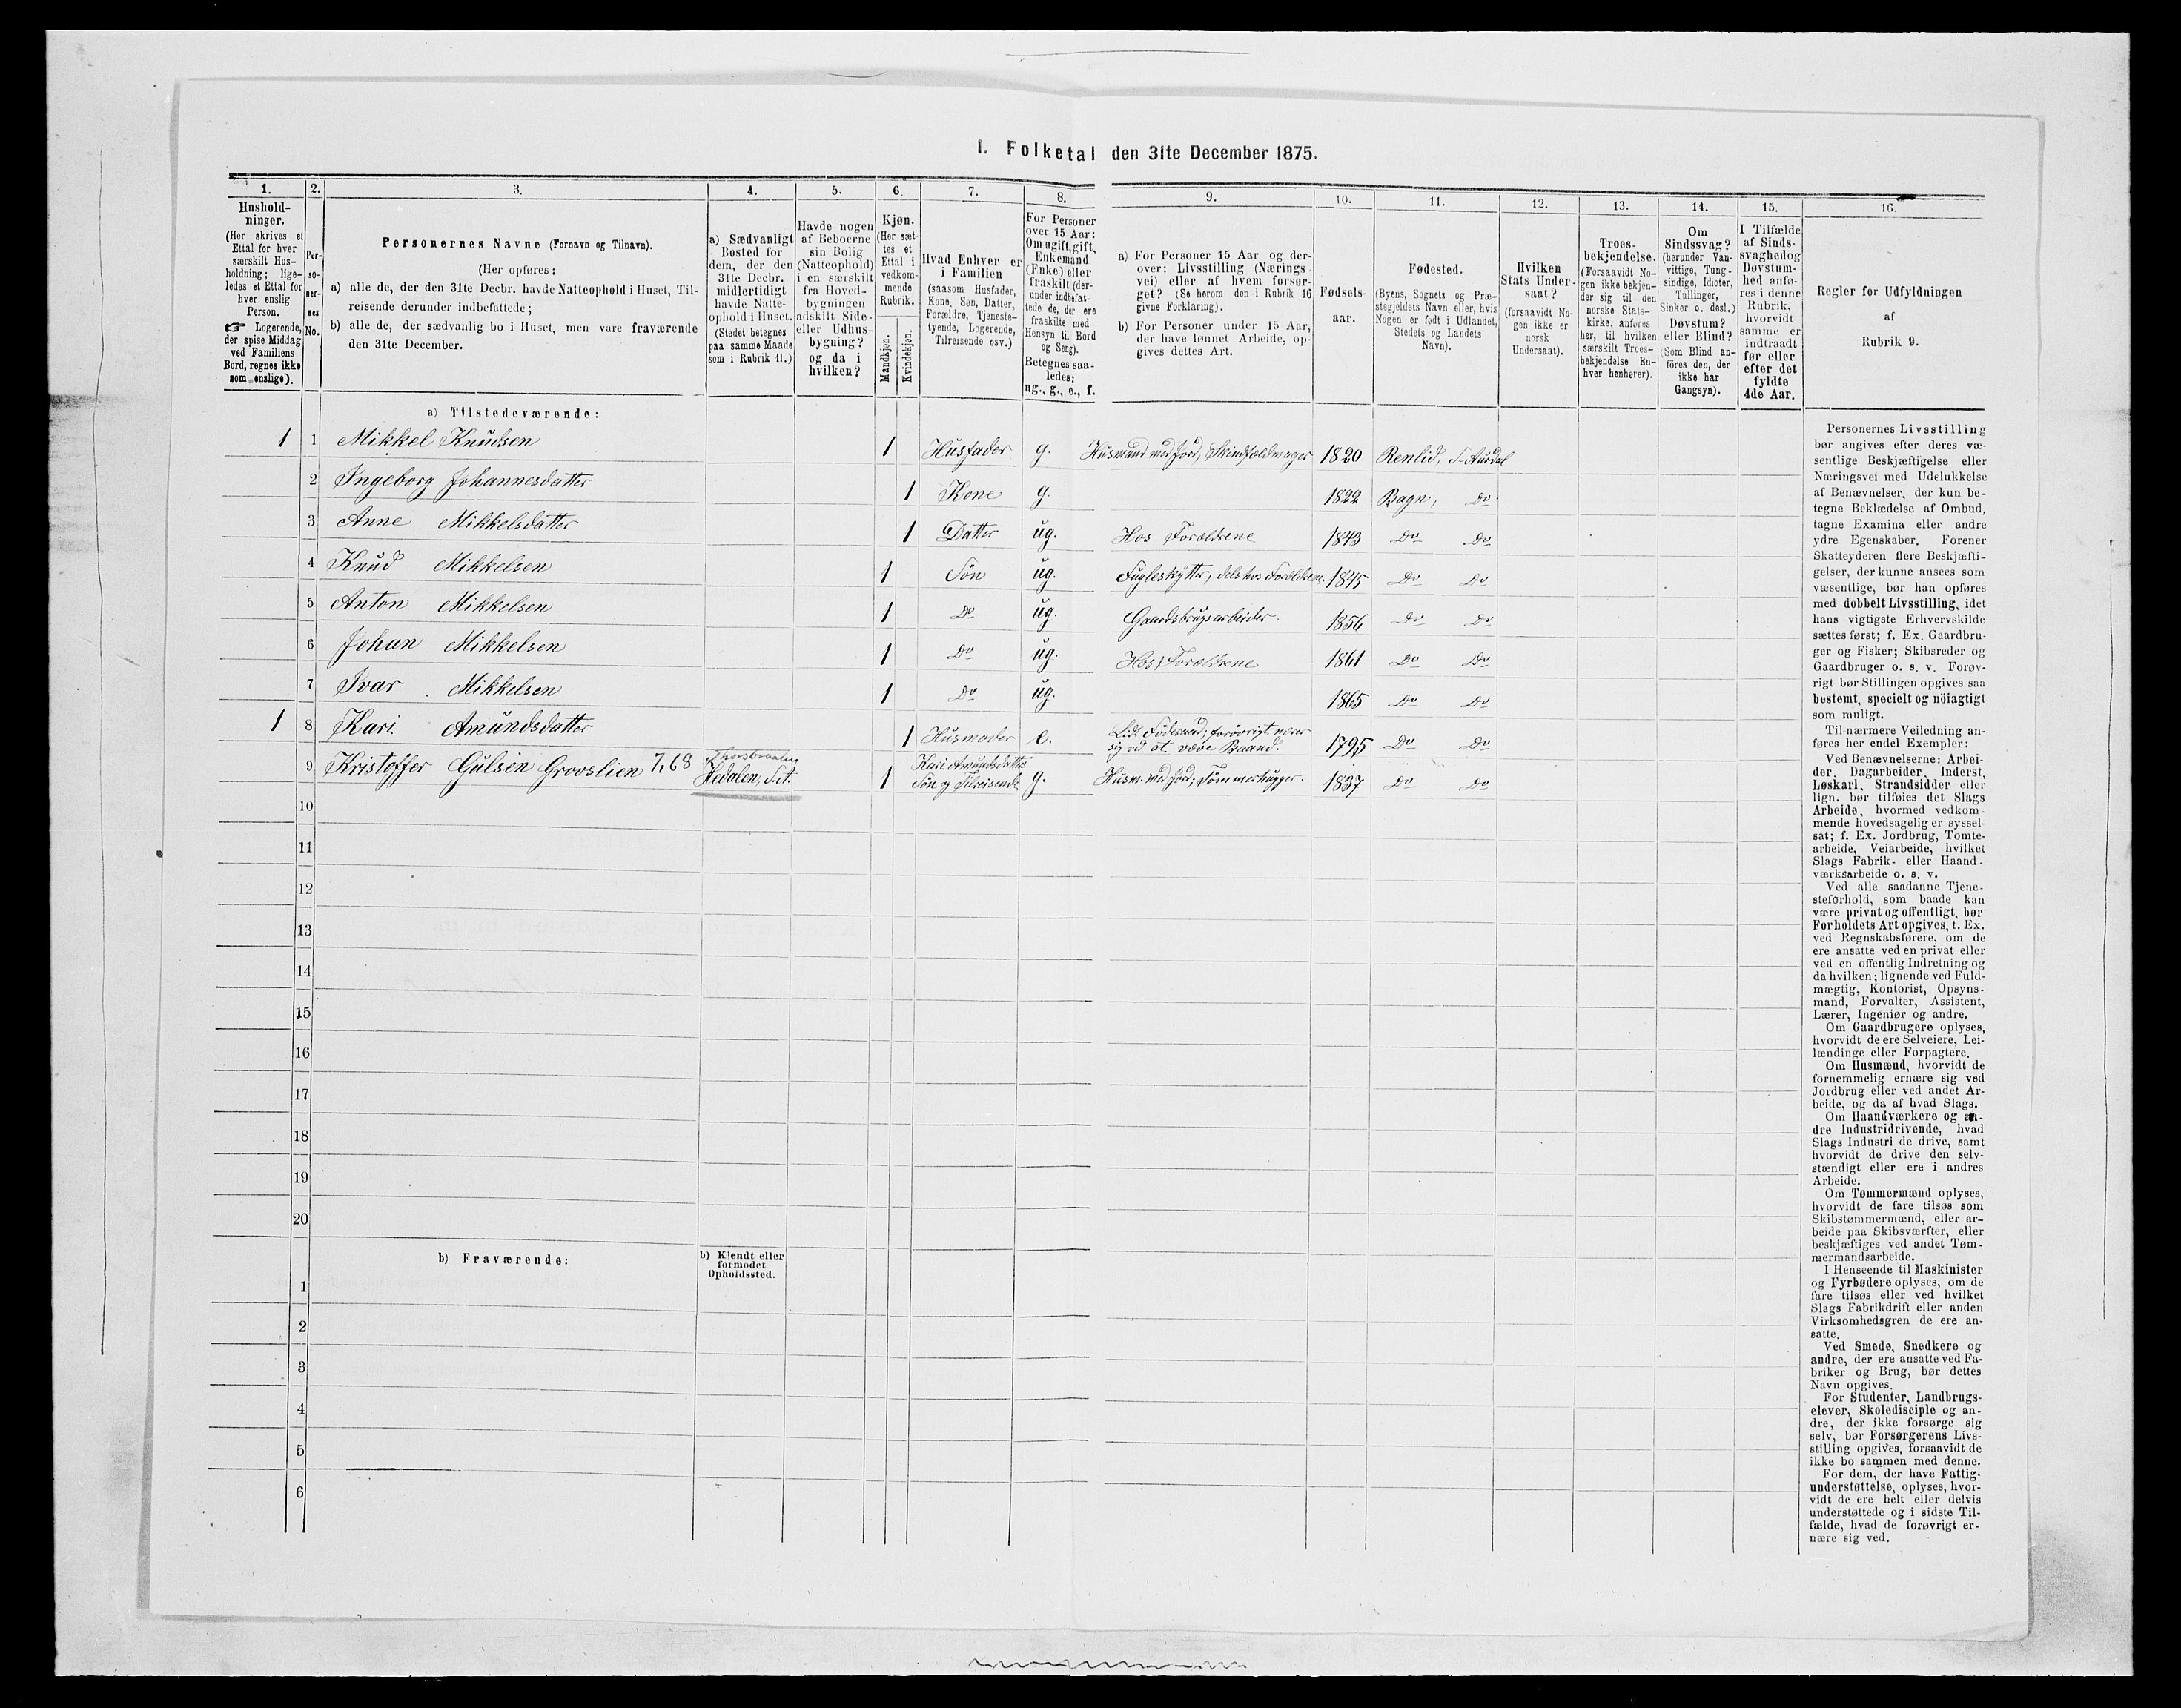 I. Folketal den 31te December 1875.
1.
Hushold-
ninger.
(Her skrives et
Ettal for hver
særskilt Hus-
holdning; lige-
ledes et Ettal for
hver enslig
Person.
☞ Logerende,
der spise Middag
ved Familiens
Bord, regnes ikke
som enslige).
2.
Per-
so-
ner-
nes
No.
3.
Personernes Navne (Fornavn og Tilnavn).
(Her opføres:
a) alle de, der den 31te Decbr. havde Natteophold i Huset, Til-
reisende derunder indbefattede;
b) alle de, der sædvanlig bo i Huset, men vare fraværende
den 31te December.
4.
a) Sædvanligt
Bosted for
dem, der den
31te Decbr.
midlertidigt
havde Natte-
ophold i Huset.
(Stedet betegnes
paa samme Maade
som i Rubrik 11.)
5.
Havde nogen
af Beboerne
sin Bolig
(Natteophold)
i en særskilt
fra Hoved-
bygningen
adskilt Side-
eller Udhus-
bygning?
og da i
hvilken?
6.
Kjøn.
(Her sæt-
tes et
Ettal i
vedkom-
mende
Rubrik.
Mandkjøn.
Kvindekjøn.
7.
Hvad Enhver er
i Familien
(saasom Husfader,
Kone, Søn, Datter,
Forældre, Tjeneste-
tyende, Logerende,
Tilreisende osv.)
8.
For Personer
over 15 Aar:
Om ugift, gift,
Enkemand
(Enke) eller
fraskilt (der-
under indbefat-
tede de, der ere
fraskilte med
Hensyn til Bord
og Seng).
Betegnes saa-
ledes:
ug., g., e., f.
9.
a) For Personer 15 Aar og der-
over: Livsstilling (Nærings-
vei) eller af hvem forsør-
get? (Se herom den i Rubrik 16
givne Forklaring).
b) For Personer under 15 Aar,
der have lønnet Arbeide, op-
gives dettes Art.
10.
Fødsels-
aar.
11.
Fødested.
(Byens, Sognets og Præ-
stegjeldets Navn eller, hvis
Nogen er født i Udlandet,
Stedets og Landets
Navn).
12.
Hvilken
Stats Under-
saat?
(forsaavidt No-
gen ikke er
norsk
Undersaat).
13.
Troes-
bekjendelse.
(Forsaavidt No-
gen ikke bekjen-
der sig til den
norske Stats-
kirke, anføres
her, til hvilken
særskilt Troes-
bekjendelse En-
hver henhører).
14.
Om
Sindssvag?
(herunder Van-
vittige, Tung-
sindige, Idioter,
Tullinger,
Sinker o. desl.)
Døvstum?
eller Blind?
(Som Blind an-
føres den, der
ikke har
Gangsyn).
15.
I Tilfælde
af Sinds-
svaghed og
Døvstum-
hed anfø-
res i denne
Rubrik,
hvorvidt
samme er
indtraadt
før eller
efter det
fyldte
4de Aar.
16.
Regler for Udfyldningen
af
Rubrik 9.
a) Tilstedeværende:
1 1 Mikkel Knudsen 1 Husfader g. Husmand med Jord, Skindfældmager 1820 Renlid, S. Aurdal
2 Ingeborg Johannesdatter 1 Kone g. 1822 Bagn, Do
3 Anne Mikkelsdatter 1 Datter ug. Hos Forældrene 1843 Do Do
4 Knud Mikkelsen 1 Søn ug. Fugleskytter, dels hos Forældrene. 1845 Do Do
5 Anton Mikkelsen 1 Do ug. Gaardsbrugsarbeider. 1856 Do Do
6 Johan Mikkelsen 1 Do ug. Hos Forældrene 1861 Do Do
7 Ivar Mikkelsen 1 Do ug. 1865 Do Do
1 8 Kari Amundsdatter 1 Husmoder e. Lidt Føderaad; forøvrigt nærer
sig ved at væve Baand. 1795 Do Do
9 Kristoffer Gulsen Grovslien 7,68 Hedalen, 1 Kari Amundsdatters
Søn og Tilreisende g. Husm. med Jord; Tømmerhugger. 1837 Do Do
10
11
12
13
14
15
16
17
18
19
20
b) Fraværende:
b) Kjendt eller
formodet
Opholdssted.
1
2
3
4
5
6
Personernes Livsstilling
bør angives efter deres væ-
sentlige Beskjæftigelse eller
Næringsvei med Udelukkelse
af Benævnelser, der kun be-
tegne Beklædelse af Ombud,
tagne Examina eller andre
ydre Egenskaber. Forener
Skatteyderen flere Beskjæfti-
gelser, der kunne ansees som
væsentlige, bør han opføres
med dobbelt Livsstilling, idet
hans vigtigste Erhvervskilde
sættes først; f. Ex. Gaardbru-
ger og Fisker; Skibsreder og
Gaardbruger o. s. v. Forøv-
rigt bør Stillingen opgives saa
bestemt, specielt og nöiagtigt
som muligt.
Til nærmere Veiledning an-
føres her endel Exempler:
Ved Benævnelserne: Arbei-
der, Dagarbeider, Inderst,
Løskarl, Strandsidder eller
lign. bør tilføies det Slags
Arbeide, hvormed vedkom-
mende hovedsagelig er syssel-
sat; f. Ex. Jordbrug, Tomte-
arbeide, Veiarbeide, hvilket
Slags Fabrik- eller Haand-
værksarbeide o. s. v.
Ved alle saadanne Tjene-
steforhold, som baade kan
være privat og offentligt, bør
Forholdets Art opgives, t. Ex.
ved Regnskabsførere, om de
ere ansatte ved en privat eller
ved en offentlig Indretning og
da hvilken; lignende ved Fuld-
mægtig, Kontorist, Opsyns-
mand, Forvalter, Assistent,
Lærer, Ingeniør og andre.
Om Gaardbrugere oplyses,
hvorvidt de ere Selveiere, Lei-
lændinge eller Forpagtere.
Om Husmænd, hvorvidt de
fornemmelig ernære sig ved
Jordbrug eller ved andet Ar-
beide, og da af hvad Slags.
Om Haandværkere og an-
dre Industridrivende, hvad
Slags Industri de drive, samt
hvorvidt de drive den selv-
stændigt eller ere i andres
Arbeide.
Om Tømmermænd oplyses,
hvorvidt de fare tilsøs som
Skibstømmermænd, eller ar-
beide paa Skibsværfter, eller
beskjæftiges ved andet Tøm-
mermandsarbeide.
I Henseende til Maskinister
og Fyrbødere oplyses, om de
fare tilsøs eller ved hvilket
Slags Fabrikdrift eller anden
Virksomhedsgren de ere an-
satte.
Ved Smede, Snedkere og
andre, der ere ansatte ved Fa-
briker og Brug, bør dettes
Navn opgives.
For Studenter, Landbrugs-
elever, Skoledisciple og an-
dre, der ikke forsørge sig
selv, bør Forsørgerens Livs-
stilling opgives, forsaavidt de
ikke bo sammen med denne.
For dem, der have Fattig-
understøttelse, oplyses, hvor-
vidt de ere helt eller delvis
understøttede og i sidste Til-
fælde, hvad de forøvrigt er-
nære sig ved.